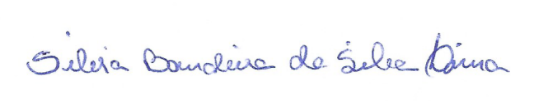 Silvia Bandeira da Silva Lima